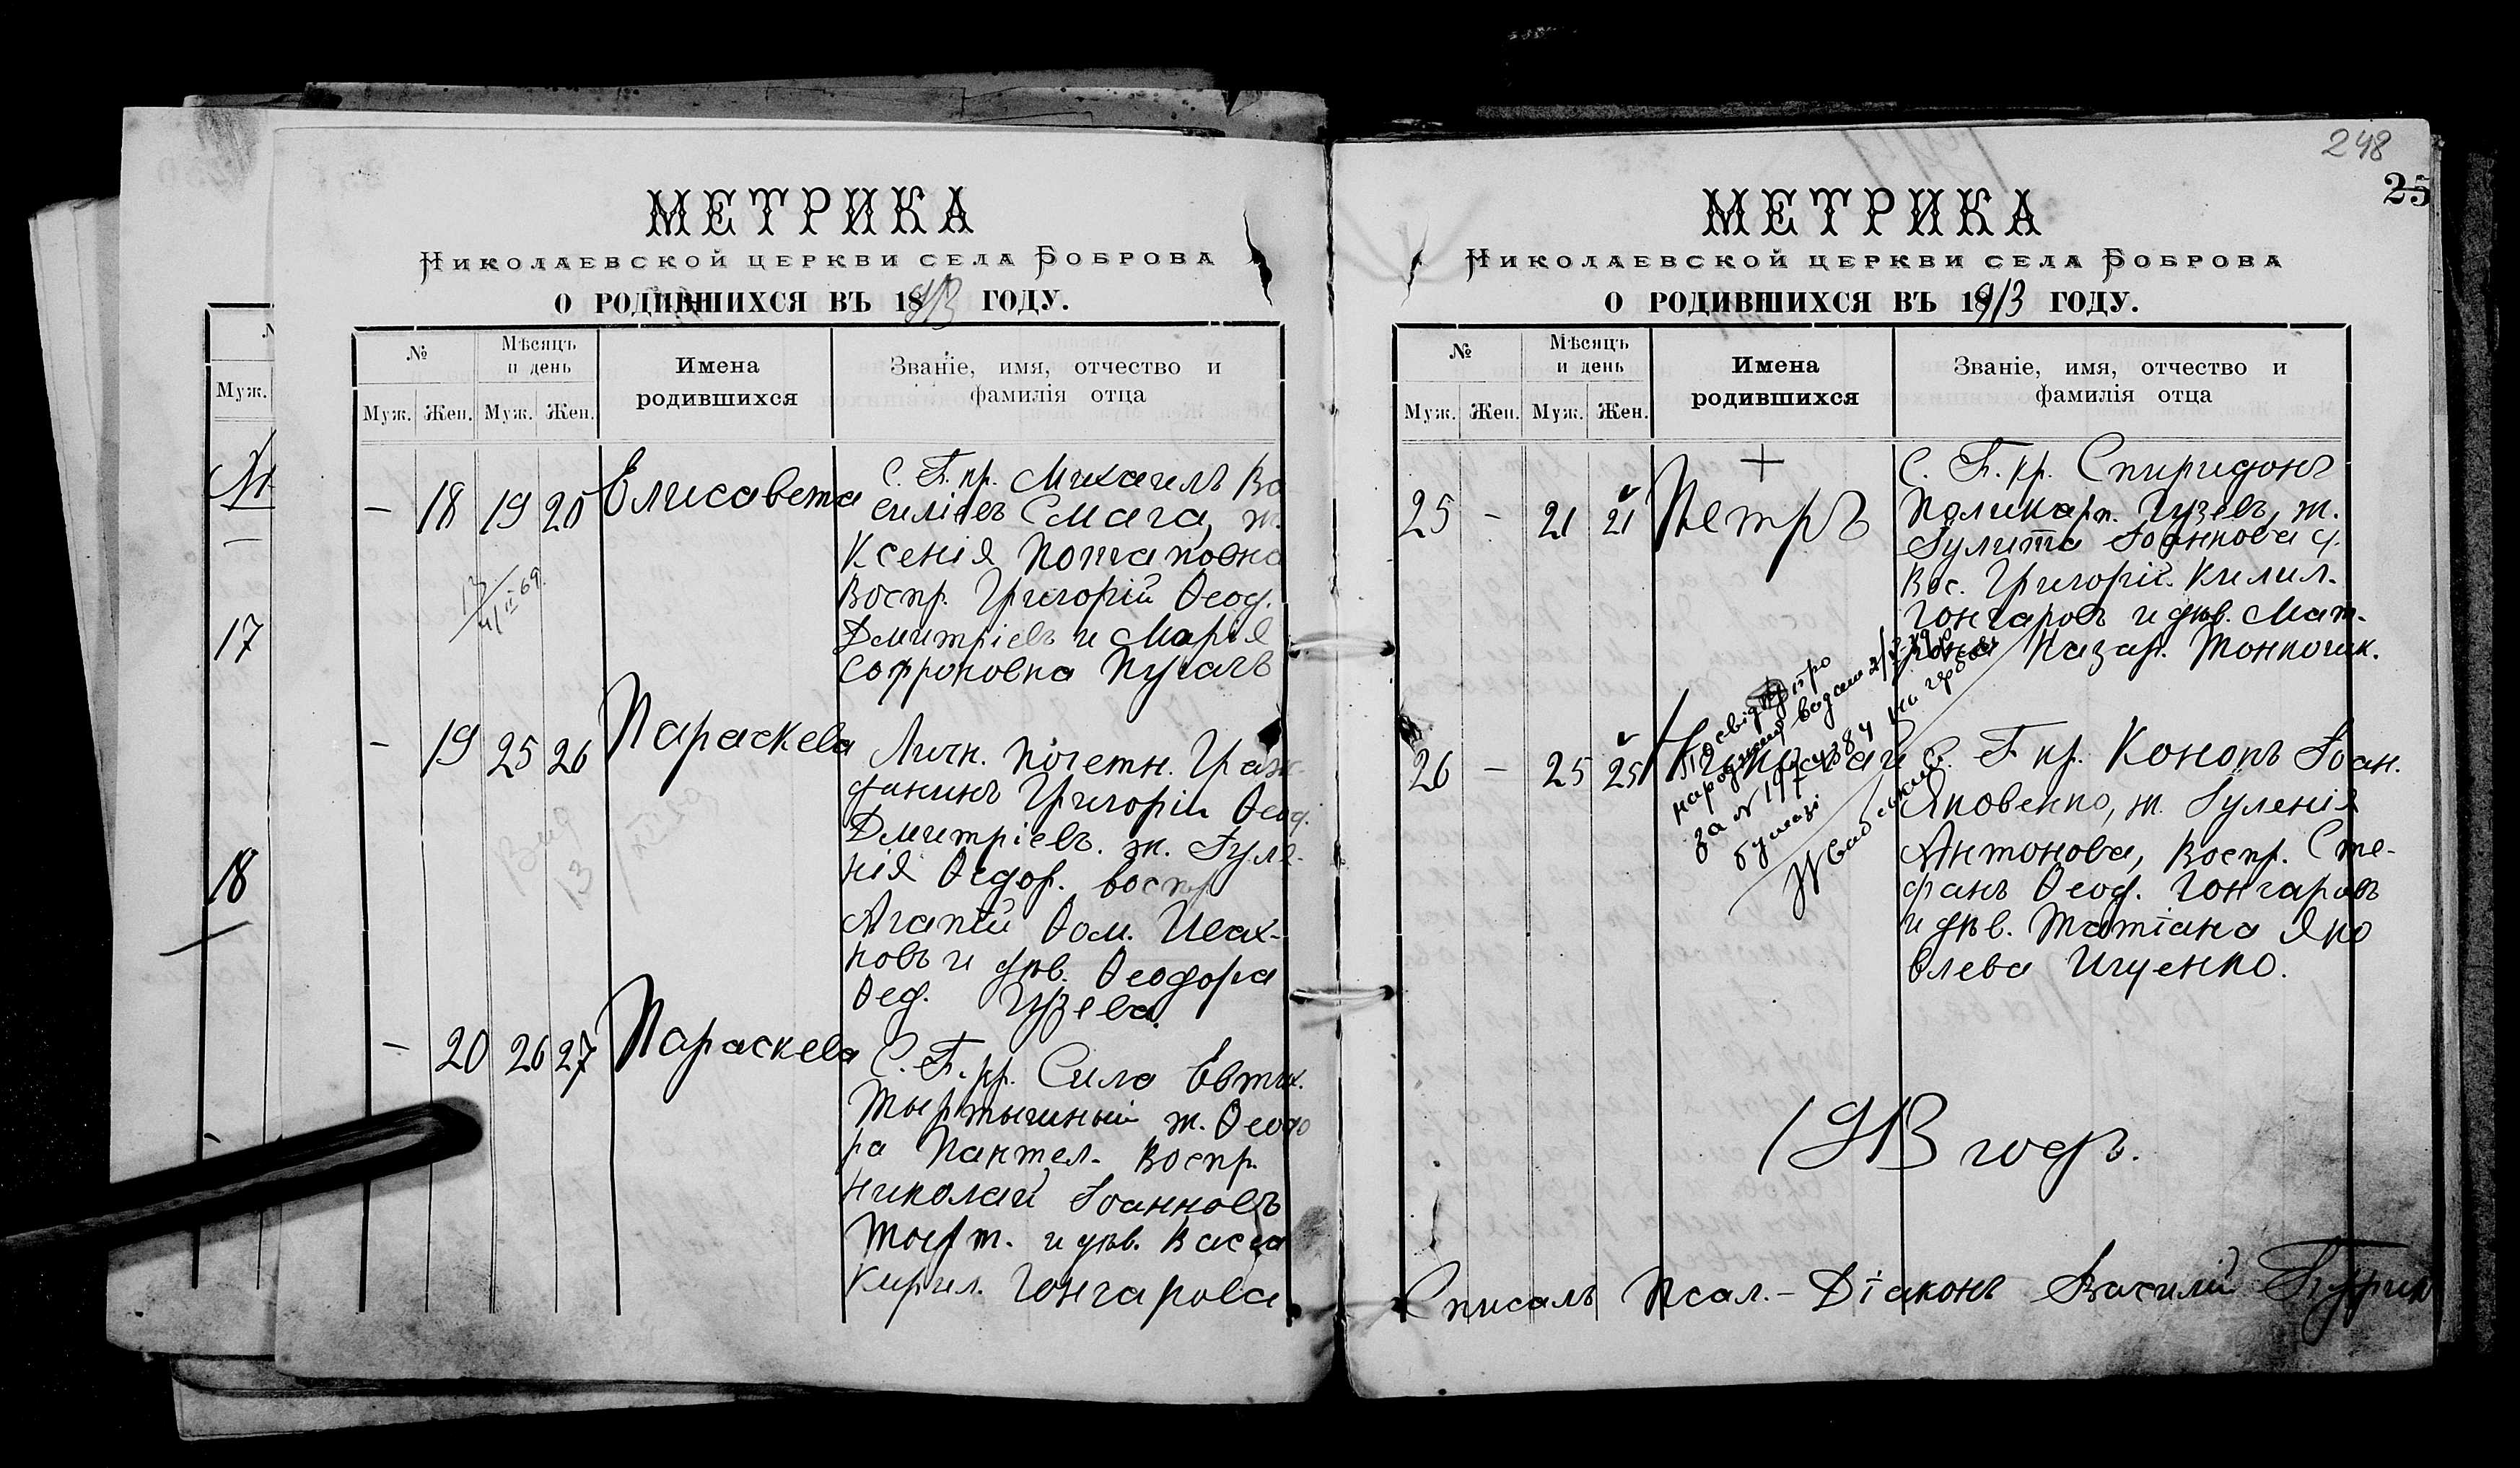 МЕТРИКА
Николаевской церкви села Боброва
О РОДИВШИХСЯ ВЪ 1913 ГОДУ.
№
Мѣсяцъ и день
Имена родившихся
Званіе, имя, отчество и
фамилія отца
Муж. Жен. Муж. Жен.
Муж.
17
18
- 18 19 20 Елисавета
С. Б. кр. Михаилъ Ва
силіевъ Смага, ж.
Ксенія Потаповна
Воспр. Григорій Ѳеод.
Дмитріевъ и Марія
Софроновна Пугачъ
- 19 25 26 Параскева
Личн. почетн. Граж-
данинъ Григорій Ѳеод.
Дмитріевъ. ж. Іуле-
нія Ѳедор. воспр
Агапій Ѳом. Исах-
новъ и дѣв. Ѳеодора
Ѳед. Гузева.
- 20 26 27 Параскева
С. Б. кр. Сила Евтих.
Тыртышный ж. Ѳеодо
ра Пантел. Воспр.
Николай Іоанновъ
Тырт. и дѣв. Васса
Кирил. Гончарова
248
25
МЕТРИКА
Николаевской церкви села Боброва
О РОДИВШИХСЯ ВЪ 1913 ГОДУ.
№
Мѣсяцъ и день
Имена родившихся
Званіе, имя, отчество и
фамилія отца
Муж. Жен. Муж. Жен.
25 - 21 21 Петръ
С. Б. кр. Спиридонъ
Поликарп. Гузевъ, ж.
Іулитта Іоаннова
Вос. Григорій
Гончаровъ и дѣв. Мат-
рона Назар.
26 - 25 25 Николай
С. Б. кр. Кононъ Іоан.
Яковенко, ж. Іуленія
Антонова, Воспр. Сте-
фанъ Ѳеод. Гончаровъ
и дѣв. Татіана Яко
влева Ищенко.
про
народження
за №
1913 годъ.
Списалъ Псал.-Діаконъ Василій